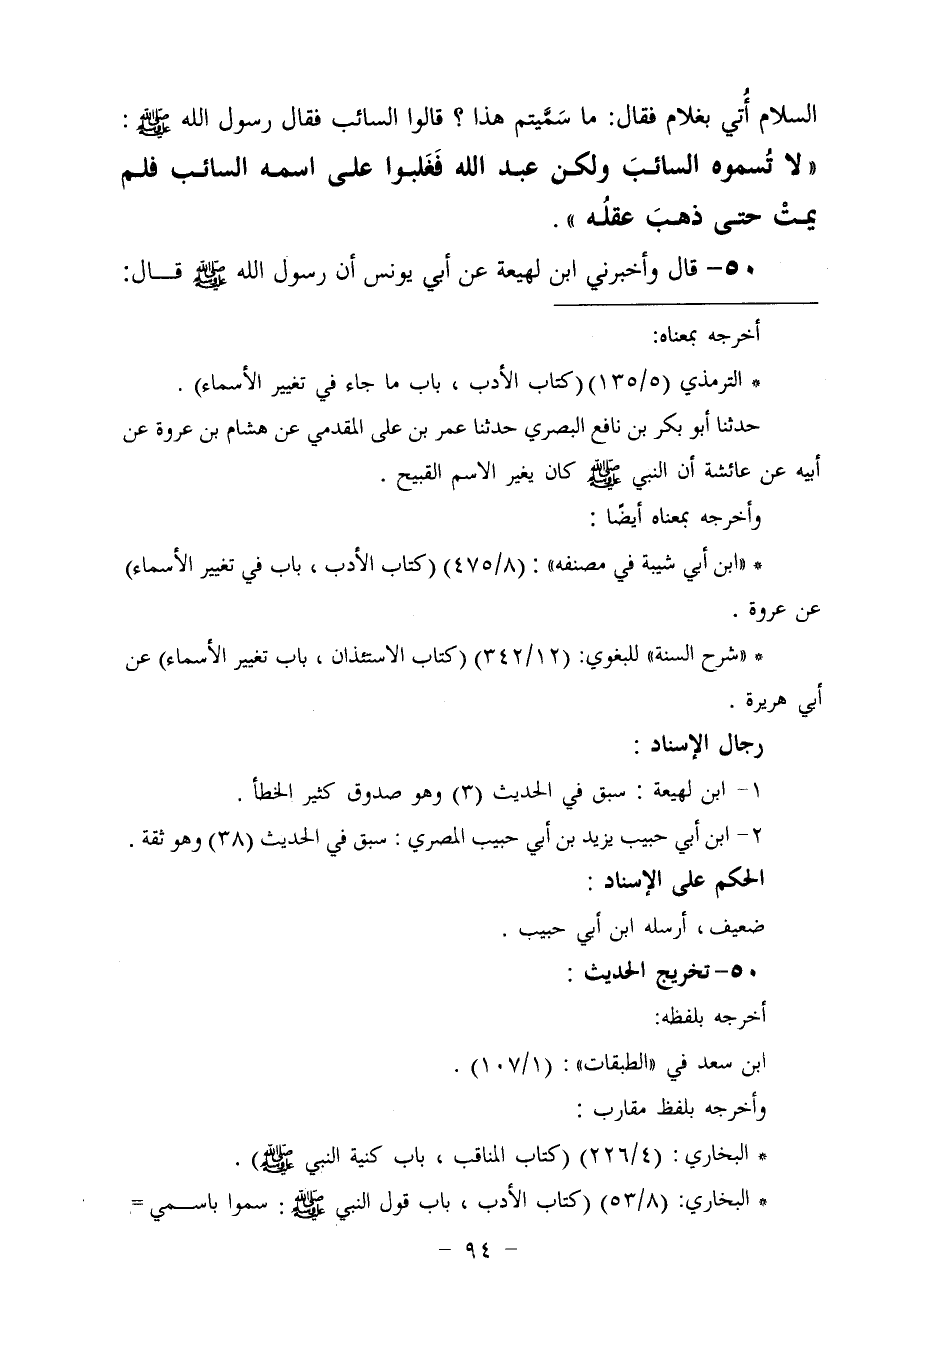 السلام أُتي بغلام فقال: ما سَمَّيتم هذا ؟ قالوا السائب فقال رسول الله ﷺ :
« لا تُسموه السائبَ ولكن عبد الله فَغَلبوا على اسمه السائب فلم
يمتْ حتى ذهبَ عقلُه » .
٥٠- قال وأخبرني ابن لهيعة عن أبي يونس أن رسول الله ﷺ قـــال:
أخرجه بمعناه:
* الترمذي (١٣٥/٥) (كتاب الأدب ، باب ما جاء في تغيير الأسماء) .
حدثنا أبو بكر بن نافع البصري حدثنا عمر بن على المقدمي عن هشام بن عروة عن
أبيه عن عائشة أن النبي ﷺ كان يغير الاسم القبيح .
وأخرجه بمعناه أيضًا :
* «ابن أبي شيبة في مصنفه» : (٤٧٥/٨) (كتاب الأدب ، باب في تغيير الأسماء)
عن عروة .
* «شرح السنة» للبغوي: (٣٤٢/١٢) (كتاب الاستئذان ، باب تغيير الأسماء) عن
أبي هريرة .
رجال الإسناد :
١- ابن لهيعة : سبق في الحديث (٣) وهو صدوق كثير الخطأ .
٢- ابن أبي حبيب يزيد بن أبي حبيب المصري : سبق في الحديث (٣٨) وهو ثقة .
الحكم على الإسناد :
ضعيف، أرسله ابن أبي حبيب .
٥٠- تخريج الحديث :
أخرجه بلفظه:
ابن سعد في «الطبقات» : (١٠٧/١) .
وأخرجه بلفظ مقارب :
* البخاري : (٢٢٦/٤) (كتاب المناقب ، باب كنية النبي ﷺ) .
* البخاري: (٥٣/٨) (كتاب الأدب ، باب قول النبي ﷺ : سموا باســمي =
- ٩٤ -